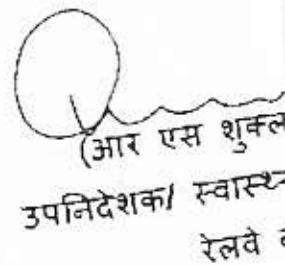 (आर एस शुक्ल
उपनिदेशक/ स्वास्थ्य
रेलवे